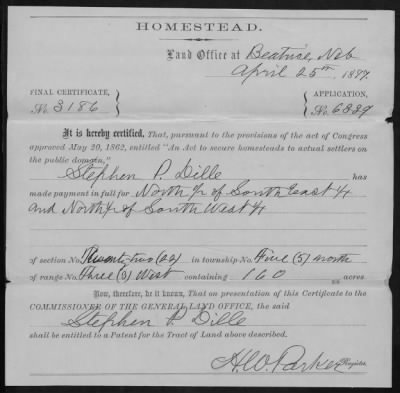 HOMESTEAD.
Land Office at Beatrice, Neb
April 25th, 187
FINAL CERTIFICATE,
No. 3186
APPLICATION,
No. 6889
It is hereby certified, That, pursuant to the provisions of the act of Congress
approved May 20, 1862, entitled "An Act to secure homesteads to actual settlers on
the public domain,"
Stephen P. Dille has
made payment in full for North ½ of South East ¼
and North ½ of South West ¼
of section No. Twenty-two (22) in township No. Five (5) north
of range No. Three (3) West containing 160 acres.
Now, therefore, be it known, That on presentation of this Certificate to the
COMMISSIONER OF THE GENERAL LAND OFFICE, the said
Stephen P. Dille
shall be entitled to a Patent for the Tract of Land above described.
H.W. Parker Register.